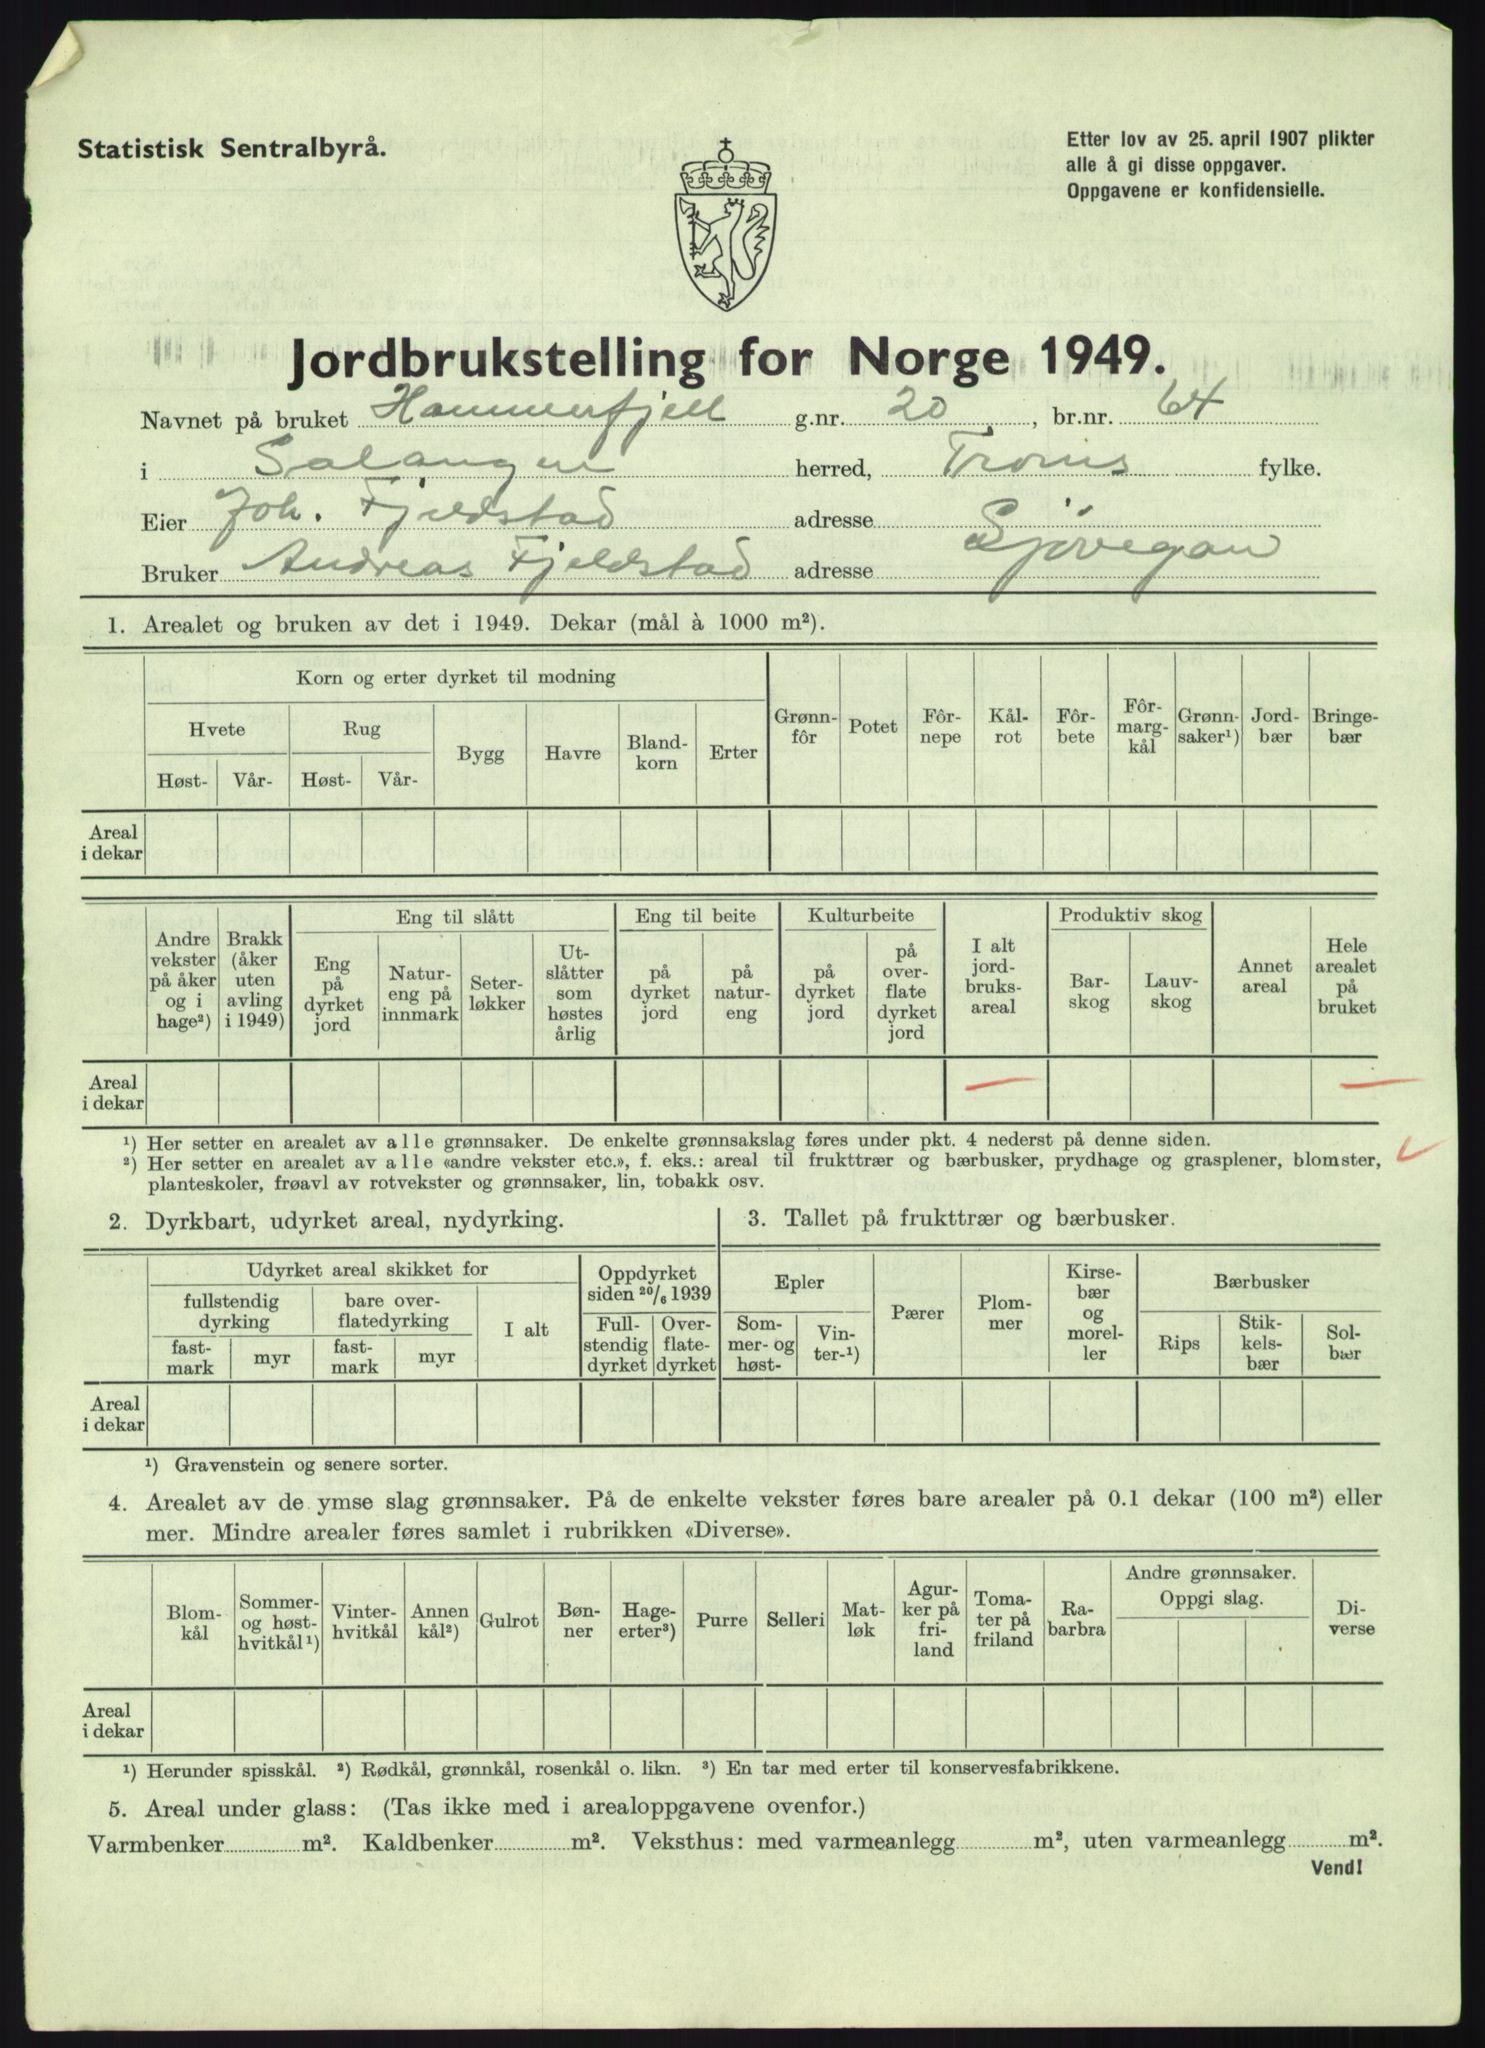 Statistisk Sentralbyrå.
Etter lov av 25. april 1907 plikter
alle å gi disse oppgaver.
Oppgavene er konfidensielle.
Jordbrukstelling for Norge 1949.
Navnet på bruket Hammerfjell g.nr. 20, br.nr. 64
i Salangen herred, Troms fylke.
Eier Joh. Fjeldstad adresse
Bruker Andreas Fjeldstad adresse Sjövegan
1. Arealet og bruken av det i 1949. Dekar (mål à 1000 m²).
Korn og erter dyrket til modning
Hvete Rug Bygg Havre Bland-korn Erter
Høst- Vår- Høst- Vår-
Grønn-fôr Potet Fôr-nepe Kål-rot Fôr-bete Fôr-marg-kål Grønn-saker¹) Jord-bær Bringe-bær
Areal
i dekar
Andre vekster på åker og i hage²) Brakk (åker uten avling i 1949)
Eng til slått
Eng på dyrket jord Natur-eng på innmark Seter-løkker Ut-slåtter som høstes årlig
Eng til beite
på dyrket jord på natur-eng
Kulturbeite
på dyrket jord på over-flate dyrket jord
I alt jord-bruks-areal
Produktiv skog
Bar-skog Lauv-skog
Annet areal Hele arealet på bruket
Areal
i dekar — —
¹) Her setter en arealet av alle grønnsaker. De enkelte grønnsakslag føres under pkt. 4 nederst på denne siden.
²) Her setter en arealet av alle «andre vekster etc.», f. eks.: areal til frukttrær og bærbusker, prydhage og grasplener, blomster,
planteskoler, frøavl av rotvekster og grønnsaker, lin, tobakk osv.
2. Dyrkbart, udyrket areal, nydyrking.
Udyrket areal skikket for
fullstendig dyrking bare over-flatedyrking I alt
fast-mark myr fast-mark myr
Oppdyrket siden 20/6 1939
Full-stendig dyrket Over-flate-dyrket
Areal
i dekar
3. Tallet på frukttrær og bærbusker.
Epler Pærer Plom-mer Kirse-bær og morel-ler Bærbusker
Som-mer- og høst- Vin-ter-¹) Rips Stik-kels-bær Sol-bær
¹) Gravenstein og senere sorter.
4. Arealet av de ymse slag grønnsaker. På de enkelte vekster føres bare arealer på 0.1 dekar (100 m²) eller
mer. Mindre arealer føres samlet i rubrikken «Diverse».
Blom-kål Sommer- og høst-hvitkål¹) Vinter-hvitkål Annen kål²) Gulrot Bøn-ner Hage-erter³) Purre Selleri Mat-løk Agur-ker på fri-land Toma-ter på friland Ra-barbra Andre grønnsaker. Oppgi slag. Di-verse
Areal
i dekar
¹) Herunder spisskål. ²) Rødkål, grønnkål, rosenkål o. likn. ³) En tar med erter til konservesfabrikkene.
5. Areal under glass: (Tas ikke med i arealoppgavene ovenfor.)
Varmbenker m². Kaldbenker m². Veksthus: med varmeanlegg m², uten varmeanlegg m².
Vend!